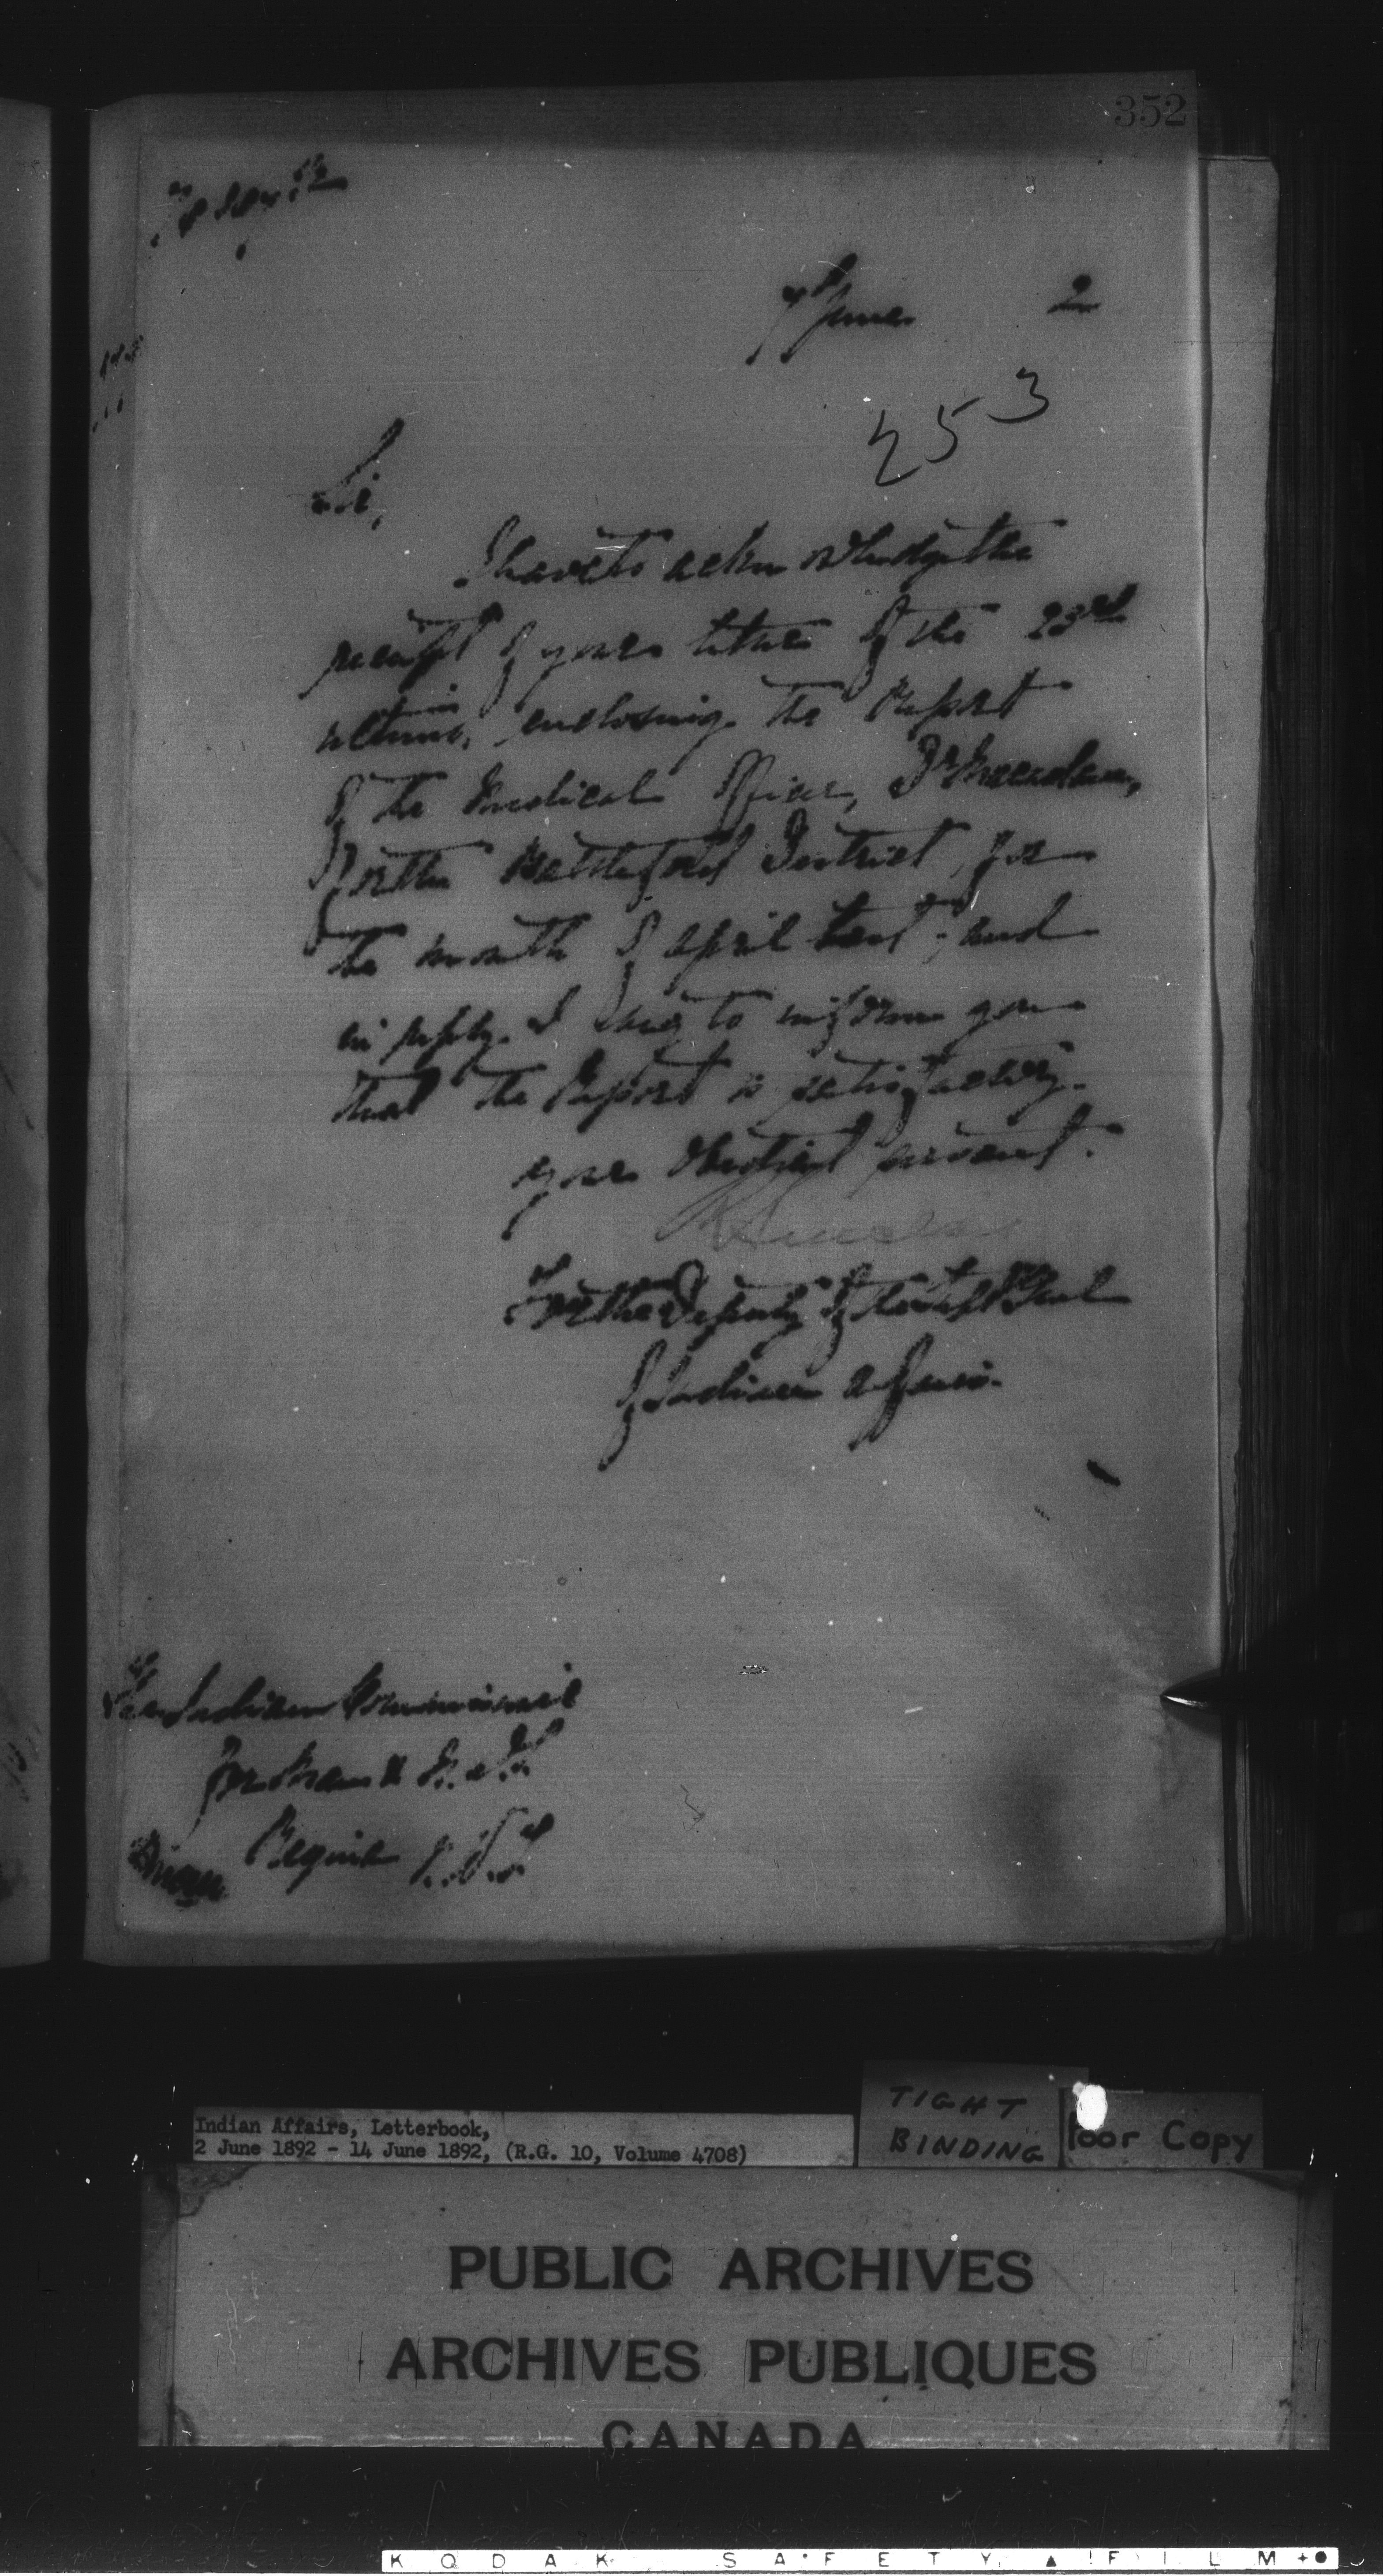 352
7th June 2
253
Sir,
I have to acknowledge the
receipt of your letter of the 23rd
ultimo, enclosing the Report
of the Medical Officer, Dr
for the Battleford District, for
the month of April last; and
in reply I beg to inform you
that the Report is satisfactory.
Your obedient servant.
R Sinclair
For the Deputy of the Supt Genl
of Indian Affairs.
The Indian Commissioner
for Man & N.W.T.
Regina N.W.T.
Indian Affairs, Letterbook,
2 June 1892 - 14 June 1892, (R.G. 10, Volume 4708)
TIGHT
BINDING
Poor Copy
PUBLIC ARCHIVES
ARCHIVES PUBLIQUES
CANADA
KODAK SAFETY FILM